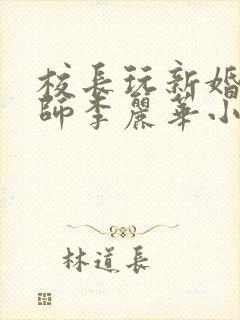 校長玩新婚
師李麗華小
林道長